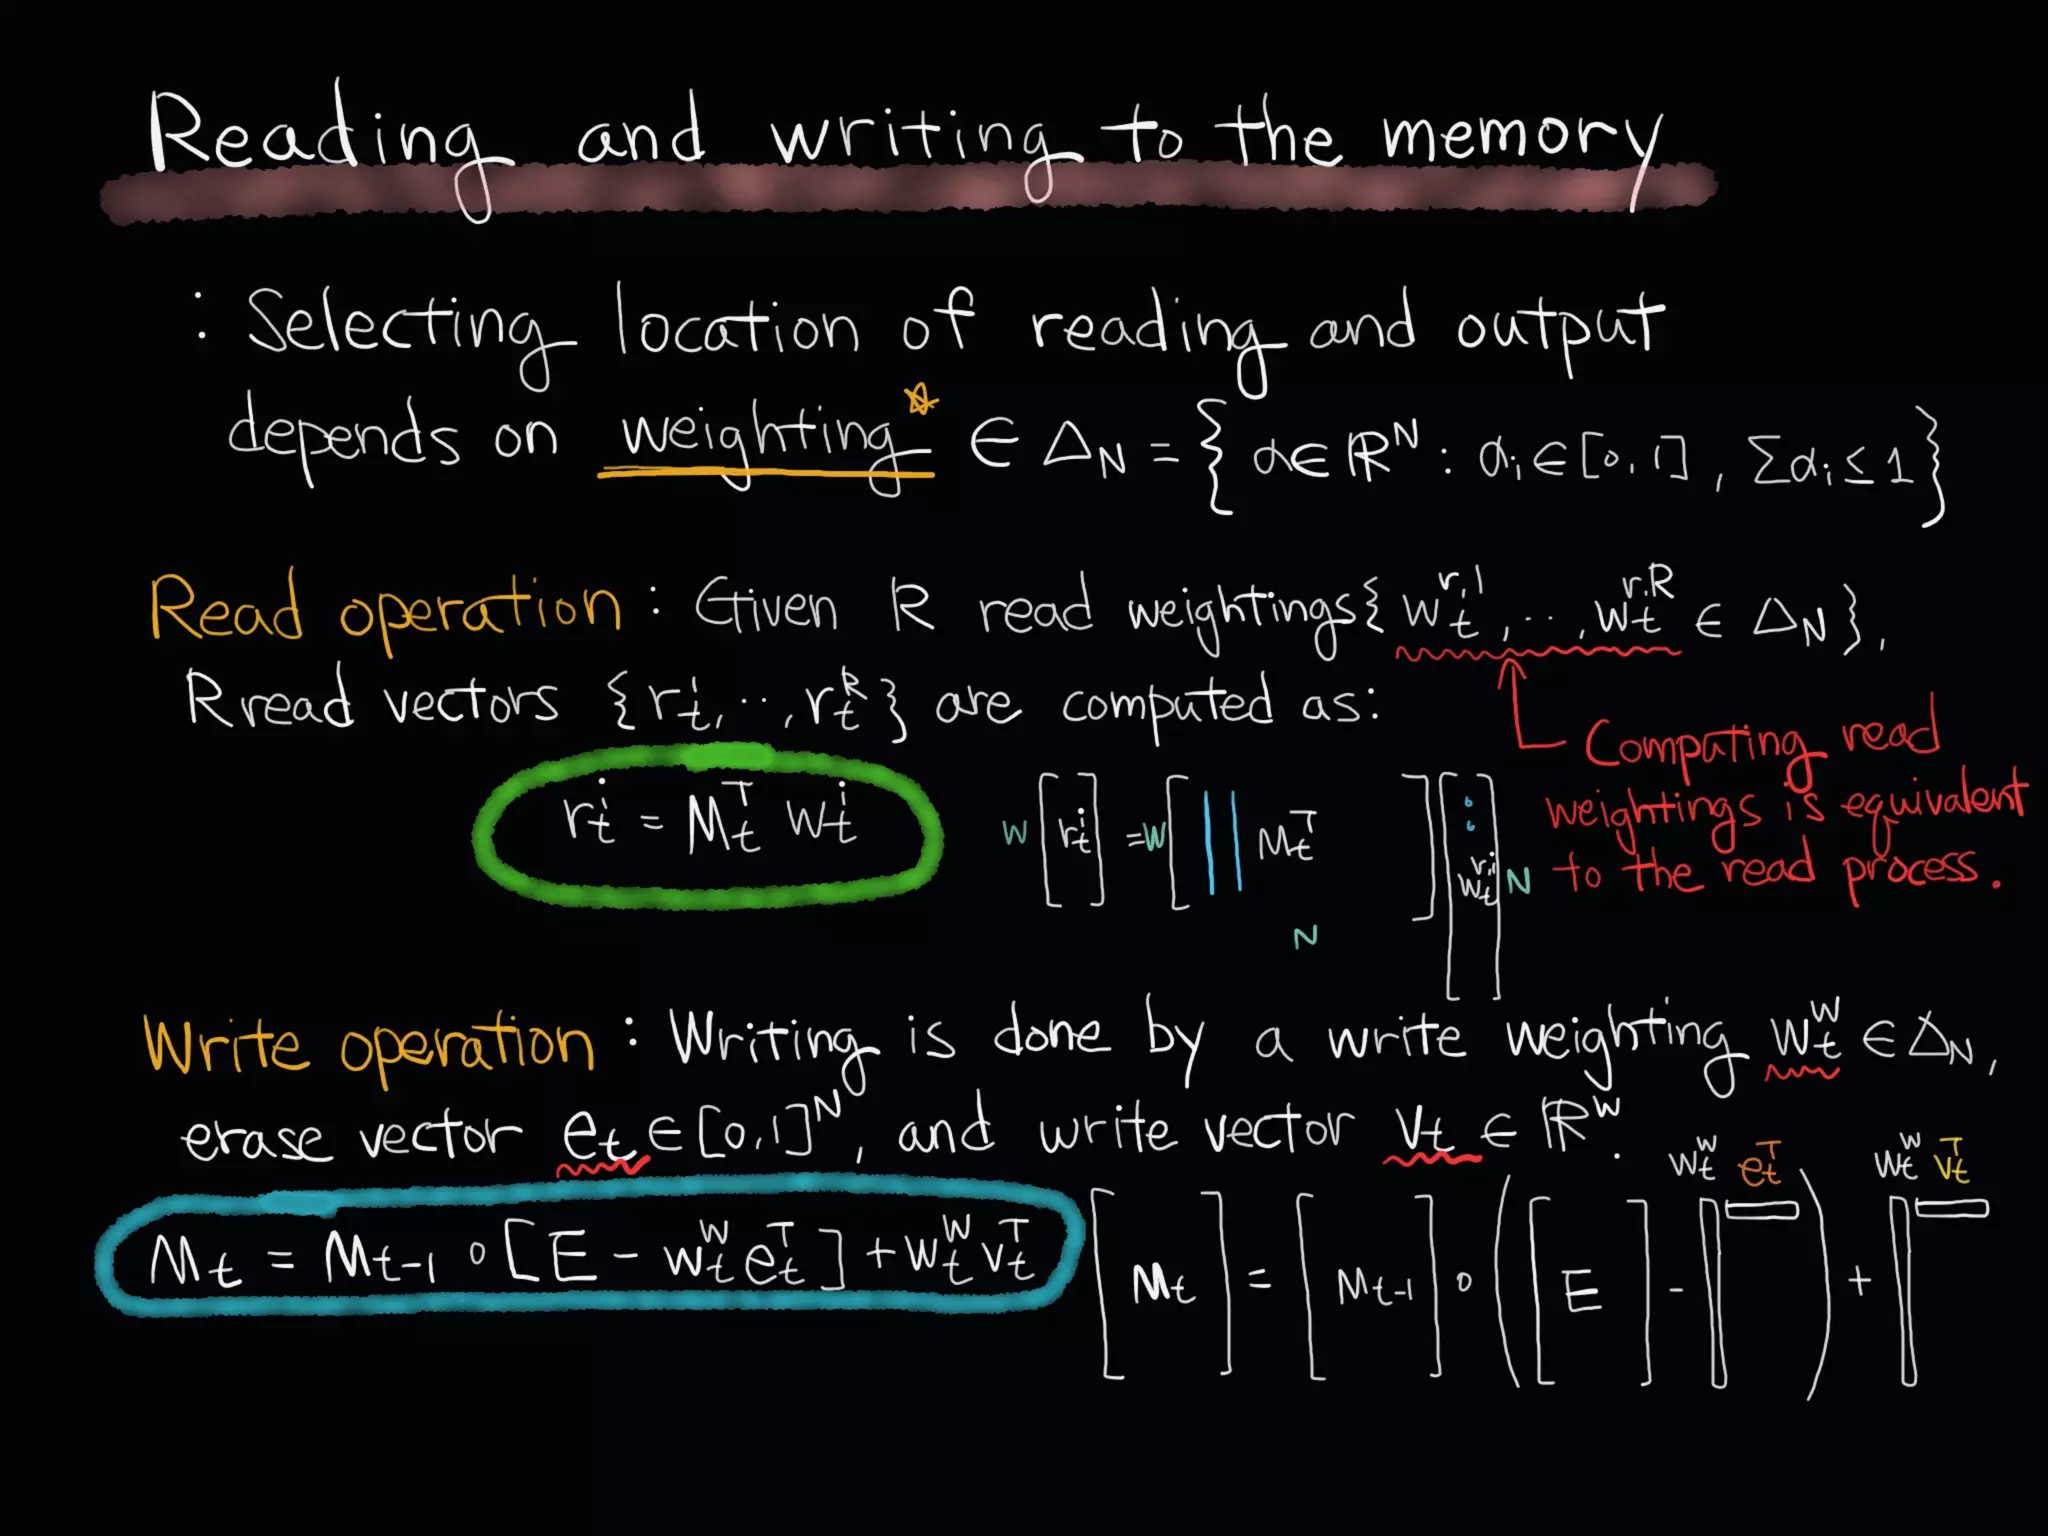 Reading and writing to the memory
: Selecting location of reading and output
depends on weighting* ∈ △_N = { α∈ℝ^N : α_i∈[0,1], Σα_i≤1 }
Read operation : Given R read weightings{ w_t^{r,1}, ‥, w_t^{r.R} ∈ △_N },
R read vectors {r_t^1, ‥, r_t^R} are computed as:
r_t^i = M_t^T w_t^i
W [ r_t^i ] = W [ M_t^T ] [ w_t^{r,i} ] N
N
Computing read
weightings is equivalent
to the read process.
Write operation : Writing is done by a write weighting w_t^w ∈ △_N,
erase vector e_t ∈ [0,1]^N, and write vector v_t ∈ ℝ^W.
M_t = M_{t-1} ∘ [E - w_t^w e_t^T] + w_t^w v_t^T
w_t^w e_t^T w_t^w v_t^T
[ M_t ] = [ M_{t-1} ] ∘ ( [ E ] - ) +